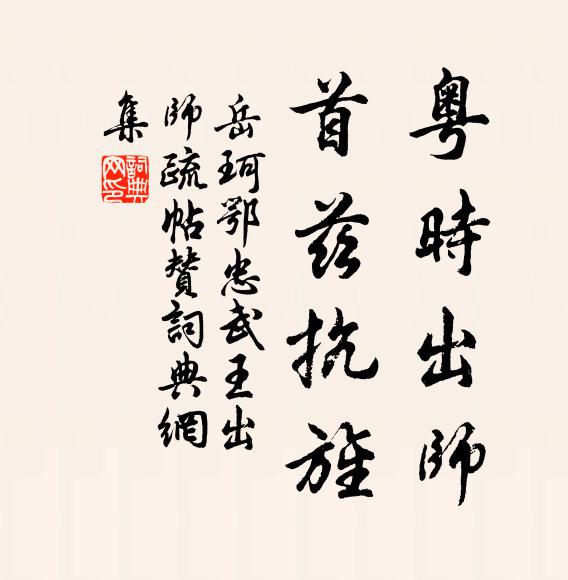 粤時出師
首茲抗旌
岳珂鄂忠武王出
師疏帖賛詞典網
集
詞典网印